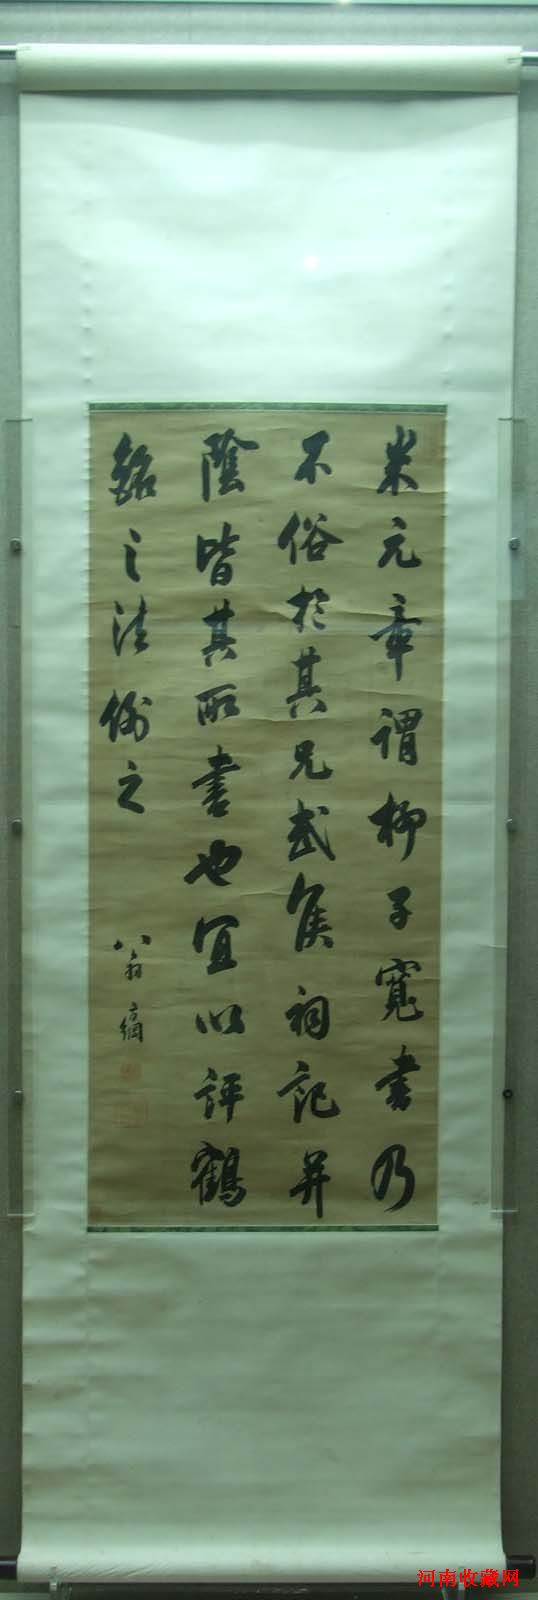 米元章謂柳子寬書乃
不俗於其兄武侯祠記并
陰皆其所書也宜以評鶴
銘之法例之
翁方綱
河南收藏网